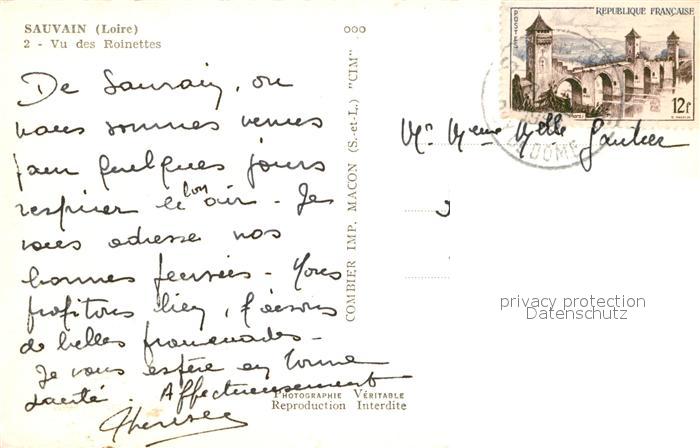 SAUVAIN (Loire)
2 - Vu des Roinettes
De Sauvain, ou
nous sommes venus
pour quelques jours
respirer le bon air - Je
vous adresse nos
bonnes pensées - Nous
profitons bien, faisons
de belles promenades -
Je vous espère en bonne
santé. Affectueusement
Thérèse
PHOTOGRAPHIE VÉRITABLE
Reproduction Interdite
COMBIER IMP. MACON (S.-et-L.) "CIM"
POSTES
REPUBLIQUE FRANÇAISE
12F
DE DOME
Mr Mme Melle Gautier
privacy protection
Datenschutz